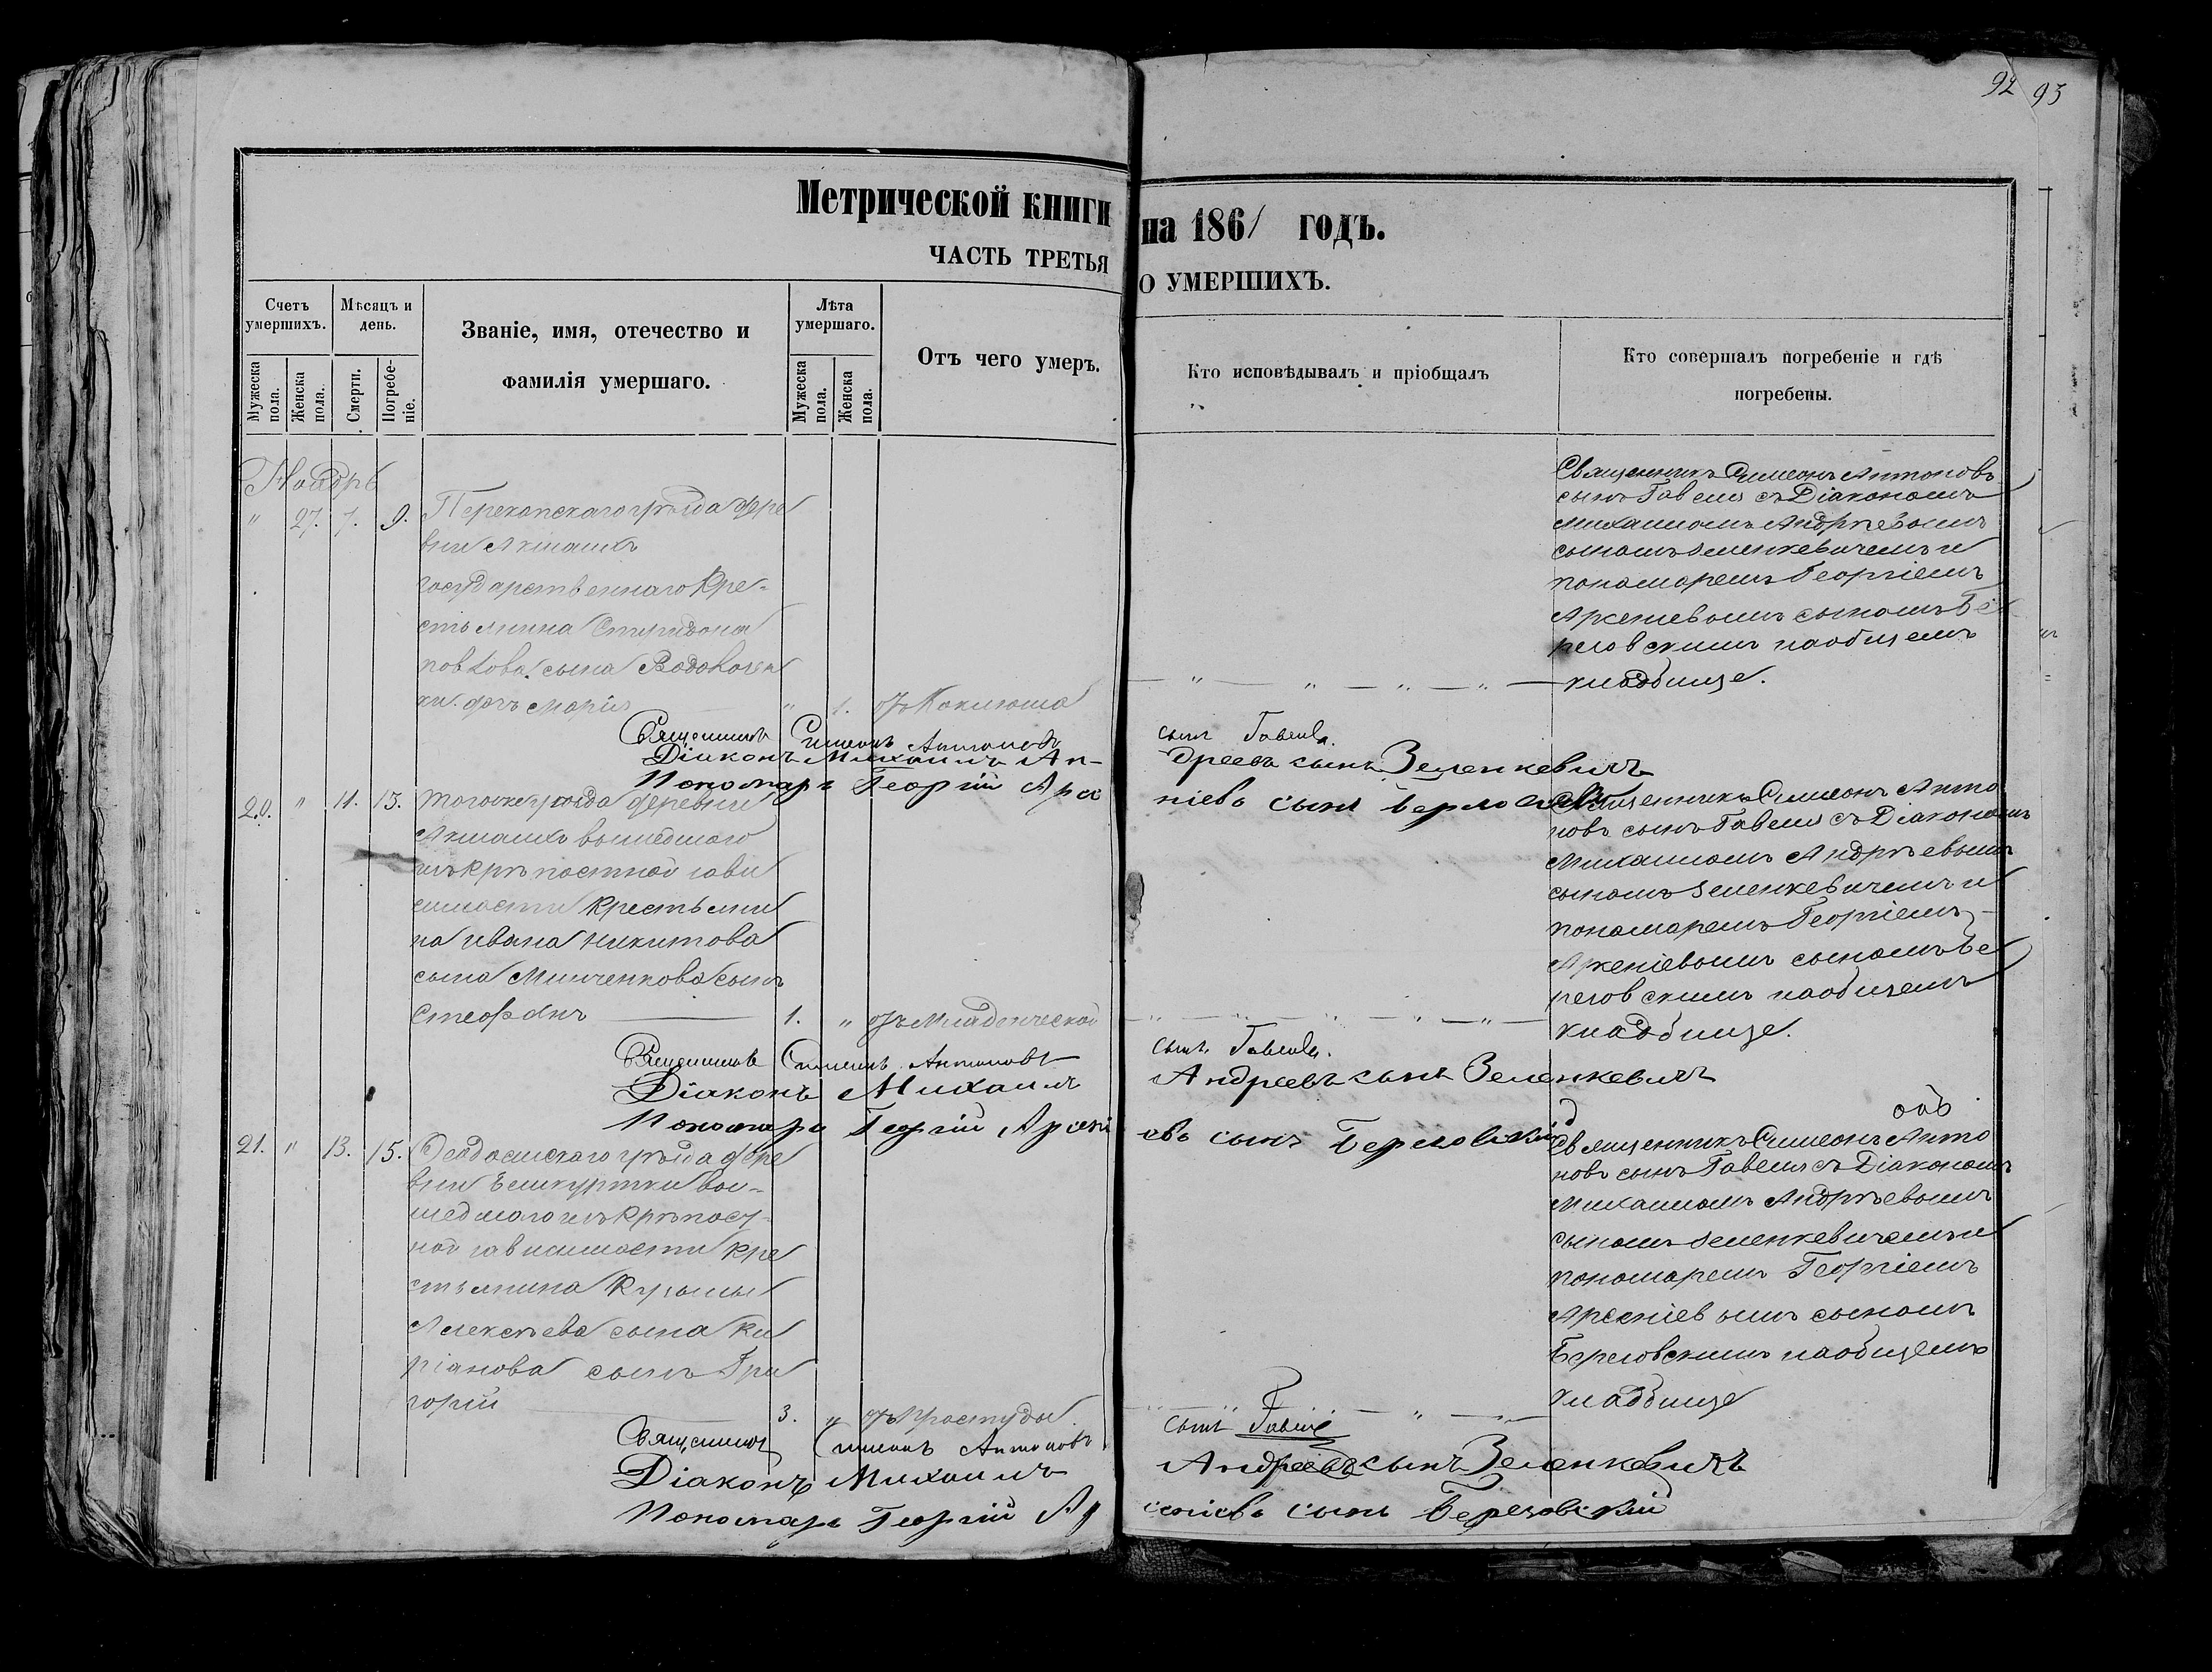 92 93
Метрической книги на 1861 годъ.
ЧАСТЬ ТРЕТЬЯ О УМЕРШИХЪ.
Счетъ умершихъ.
Мужеска пола.
Женска пола.
Мѣсяцъ и день.
Смерти.
Погребе-
ніе.
Званіе, имя, отечество и
фамилія умершаго.
Лѣта умершаго.
Мужеска пола.
Женска пола.
Отъ чего умеръ.
Кто исповѣдывалъ и пріобщалъ
Кто совершалъ погребеніе и гдѣ
погребены.
Ноябрь
" 27. 7. 9. Перекопскаго уѣзда дере
вни
государственнаго Кре-
стьянина Спиридона
сына
дочь Марія " 1. отъ Коклюша
Священникъ Симеонъ Антоновъ
сынъ съ Діакономъ
Михаиломъ Андрѣевымъ
сыномъ Зеленкевичемъ и
пономаремъ Георгіемъ
Арсеніевымъ сыномъ Бе
реговскимъ на общемъ
кладбище.
Священникъ Симеонъ Антоновъ сынъ
Діаконъ Михаилъ Ан-
дреевъ сынъ Зеленкевичъ
Пономарь Георгій Арсе
ніевъ сынъ
20. " 11. 13. тогоже уѣзда деревни
вышедшаго
изъ крѣпостной зави
симости крестьяни
на Ивана Никитова
сына Минченкова сынъ
Стефанъ 1. " отъ Младенческой
Священникъ Симеонъ Анто
новъ сынъ съ Діакономъ
Михаиломъ Андрѣевымъ
сыномъ Зеленкевичемъ и
пономаремъ Георгіемъ
Арсеніевымъ сыномъ Бе
реговскимъ на общемъ
кладбище.
Священникъ Симеонъ Антоновъ сынъ
Діаконъ Михаилъ Андреевъ сынъ Зеленкевичъ
Пономарь Георгій Арсені
евъ сынъ Береговскій
21. " 13. 15. Феодосійскаго уѣзда дере
вни вы-
шедшаго изъ крѣпост-
ной зависимости кре
стьянина Кузьмы
Алексѣева сына Ки
ріанова сынъ Гри
горій 3. " отъ Простуды.
Священникъ Симеонъ Анто
новъ сынъ съ Діакономъ
Михаиломъ Андрѣевымъ
сыномъ Зеленкевичемъ и
пономаремъ Георгіемъ
Арсеніевымъ сыномъ
Береговскимъ на общемъ
кладбище
Священникъ Симеонъ Антоновъ сынъ
Діаконъ Михаилъ Андреевъ сынъ Зеленкевичъ
Пономарь Георгій Ар
сеніевъ сынъ Береговскій